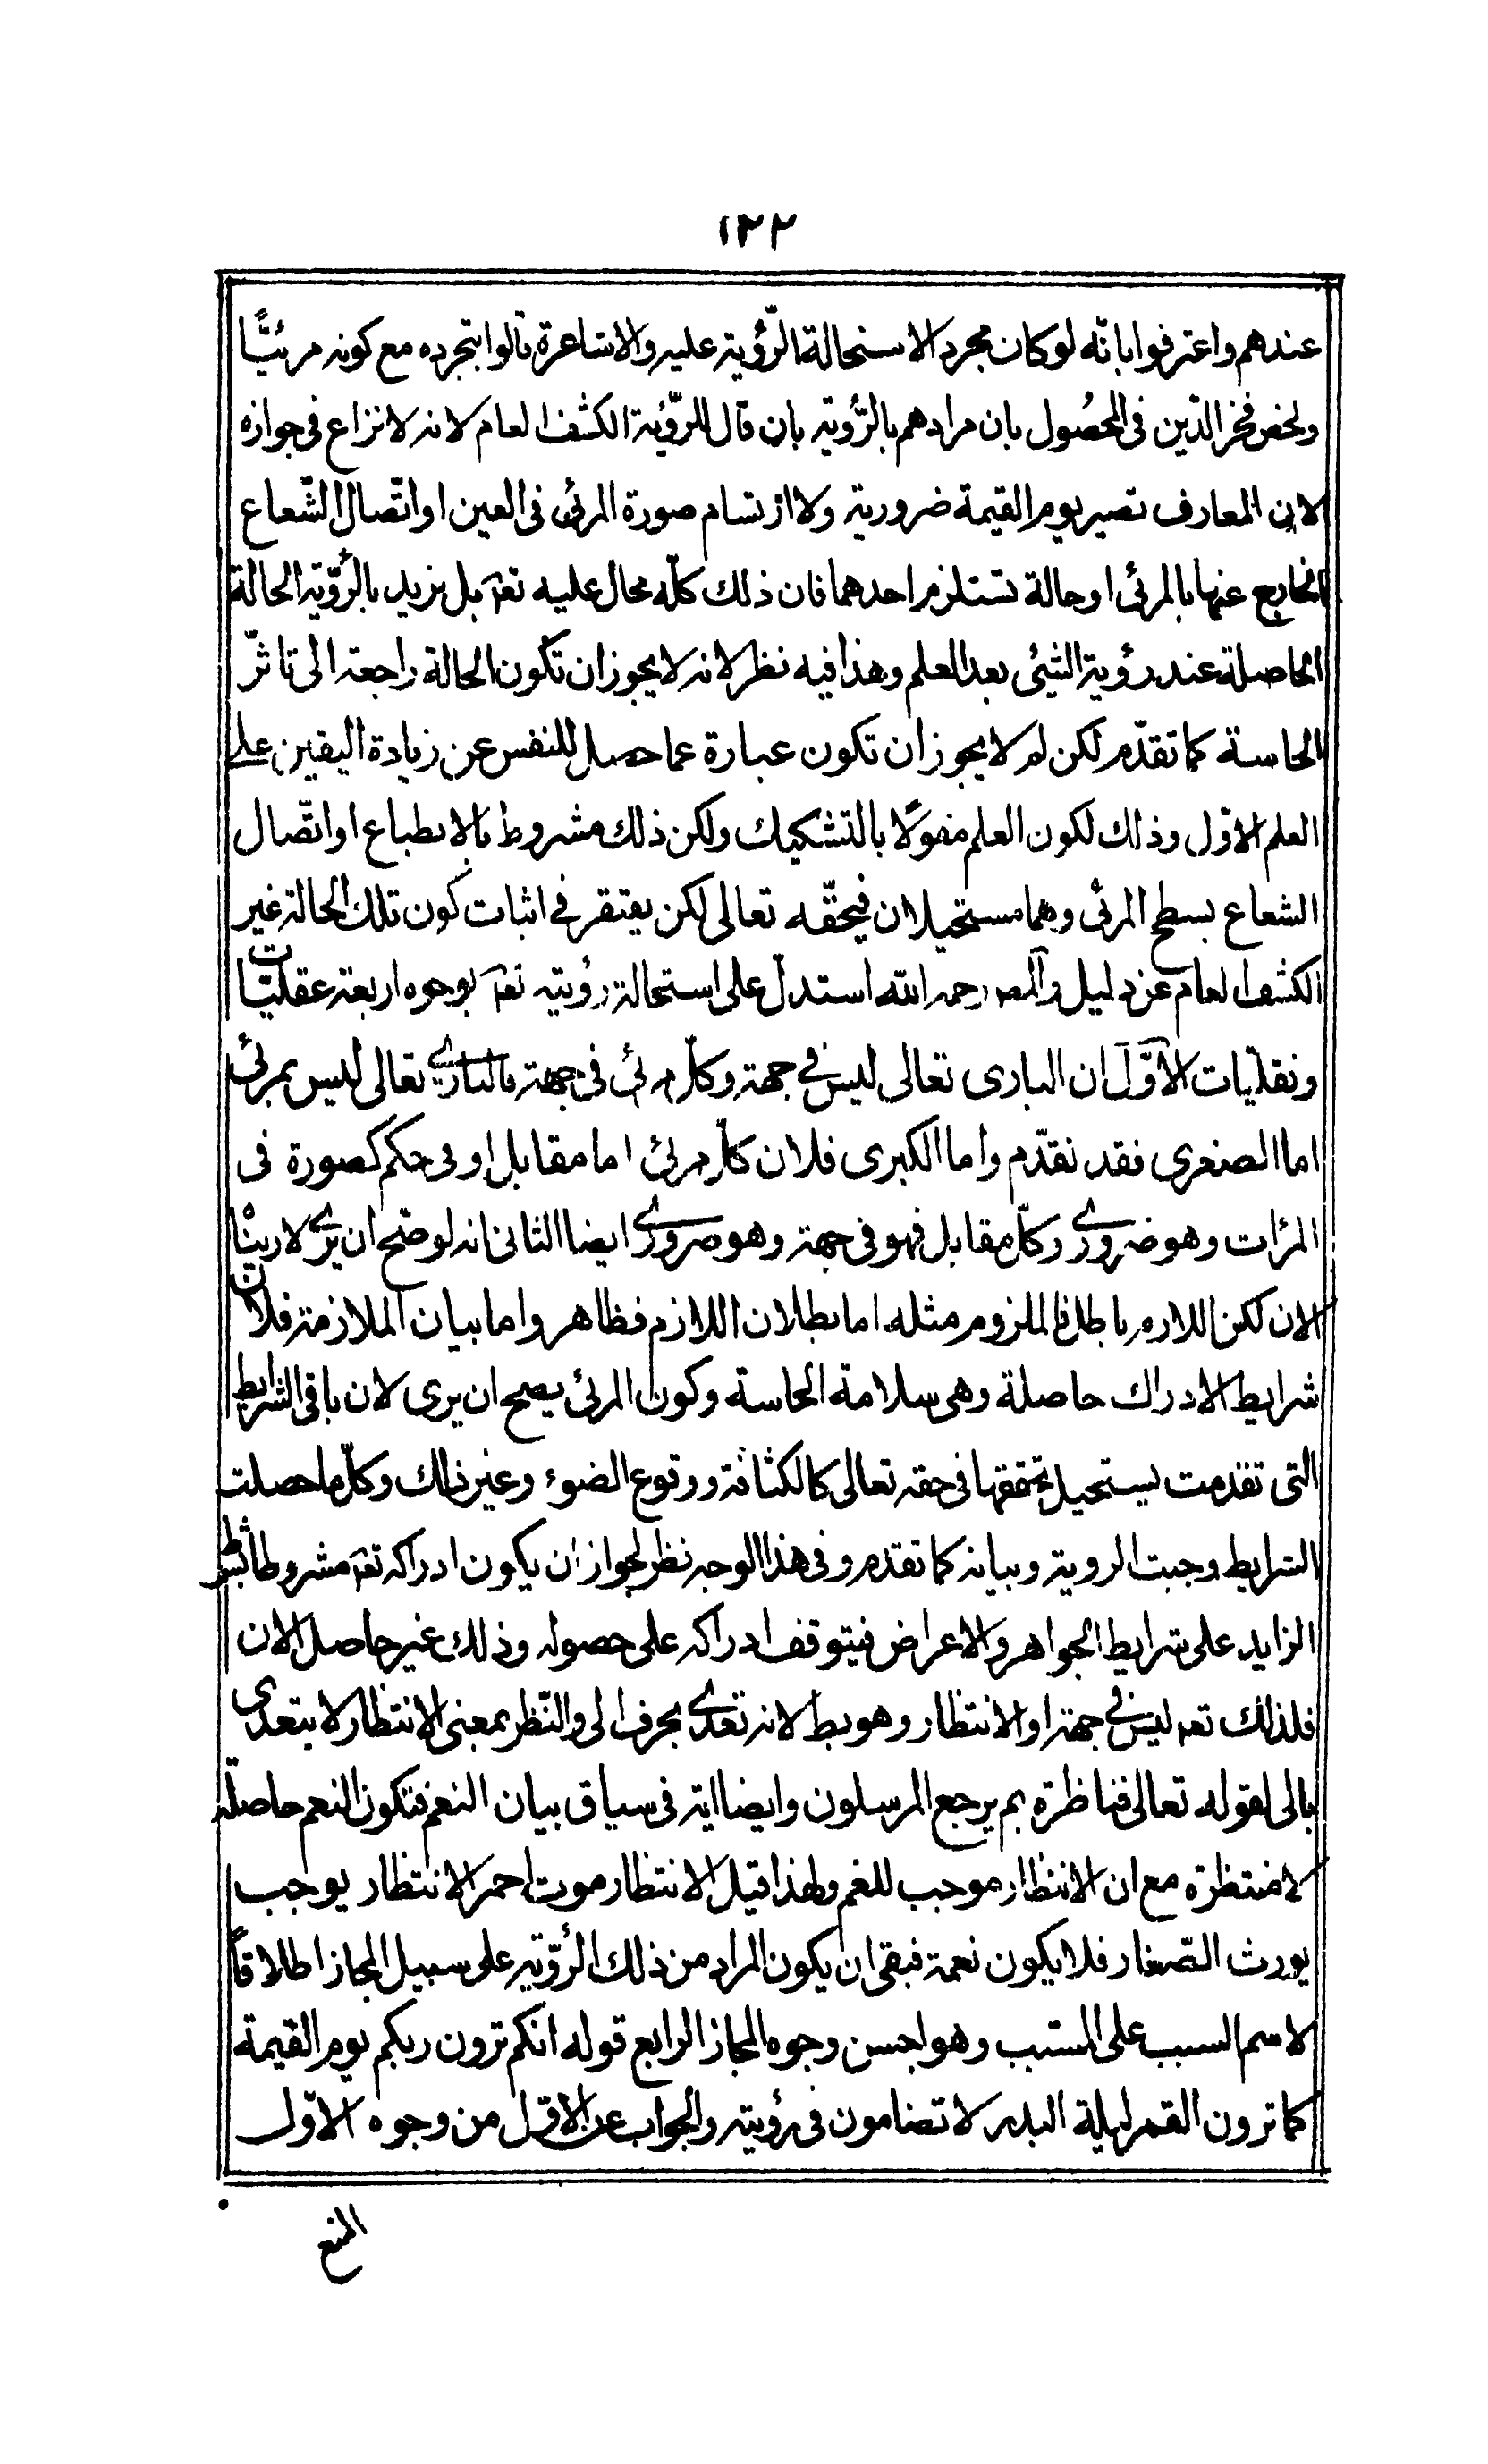 ١٢٢
عندهم واعترفوا بانّه لو كان مجرد الاستحالة الرّؤية عليه والاشاعرة قالوا بتجرده مع كونه مرئيًّا
ولخص فخر الدّين فى المحصول بان مرادهم بالرّؤية بان قال للرّؤية الكشف العام لانه لا نزاع فى جوازه
لان المعارف تصير يوم القيمة ضرورية ولا ارتسام صورة المرئى فى العين او اتّصال الشّعاع
الخارج عنها بالمرئى او حالة تستلزم احدهما فان ذلك كلّه محال عليه تعه بل يزيد بالرّؤية الحالة
الحاصلة عند رؤية الشيئ بعد العلم وهذا فيه نظر لانه لا يجوز ان تكون الحالة راجعة الى تاثّر
الحاسة كما تقدّم لكن لم لا يجوز ان تكون عبارة عما حصل للنفس عن زيادة اليقين على
العلم الاوّل وذلك لكون العلم مقولًا بالتشكيك ولكن ذلك مشروط بالانطباع او اتّصال
الشعاع بسطح المرئى وهما مستحيلان فيحقّه تعالى لكن يفتقر فى اثبات كون تلك الحالة غير
الكشف العام عن دليل والمص رحمه الله استدلّ على استحالة رؤيته تعه بوجوه اربعة عقليّات
ونقليّات الاوّل ان البارى تعالى ليس فى جهة وكلّ مرئى فى جهة فالبارى تعالى ليس بمرئى
اما الصغرى فقد تقدّم واما الكبرى فلان كلّ مرئى اما مقابل او فى حكم كصورة فى
المرٰات وهو ضرورى وكلّ مقابل فهو فى جهة وهو ضرورى ايضا الثانى انه لو صّح ان يرى لاريناه
الان لكن اللازم باطل فالملزوم مثله اما بطلان اللازم فظاهر واما بيان الملازمة فلان
شرايط الادراك حاصلة وهى سلامة الحاسة وكون المرئى يصح ان يرى لان باقى الشرايط
التى تقدمت يستحيل تحققها فى حقه تعالى كالكثافة ووقوع الضوء وغير ذلك وكلّما حصلت
الشرايط وجبت الروية وبيانه كما تقدم وفى هذا الوجه نظر لجواز ان يكون ادراكه تعه مشروطا بشرط
الزايد على شرايط الجواهر والاعراض فيتوقف ادراكه على حصوله وذلك غير حاصل الان
فلذلك تعه ليس فى جهة او الانتظار وهو بط لانه تعدى بحرف الى والنّظر بمعنى الانتظار لا يتعدى
بالى لقوله تعالى فناظرة بم يرجع المرسلون وايضا اية فى سياق بيان النعم فتكون النعم حاصلة
لا منتظرة مع ان الانتظار موجب للغم ولهذا قيل الانتظار موت احمر الانتظار يوجب
يورث الصّغار فلا يكون نعمة فبقى ان يكون المراد من ذلك الرّؤية على سبيل المجاز اطلاقاً
لاسم السبب على المسّبب وهو احسن وجوه المجاز الرابع قوله انكم ترون ربكم يوم القيمة
كما ترون القمر ليلة البدر لا تضامون فى رؤيته والجواب عن الاوّل من وجوه الاوّل
المنع